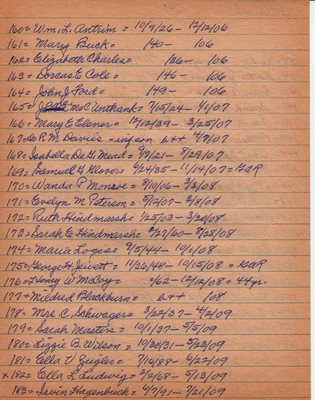 160= Wm. L. Antrim = 10/9/26 - 12/12/06
161= Mary Buck = /40 - 106
162= Elizabeth Charles = /26 - 06
163= Dorcas E Cole = /46 - 106
164= John J. Ford = /49 - 106
165= McUnthank = 7/15/24 - 4/1/07
166= Mary E Elsner = 12/12/39 - 3/25/07
167= Dr R. M. Davies = 4/9/07
168= Isabella De G. Meard = 3/9/21 - 8/29/07
169= Samuel H. = 6/24/35 - 11/14/07 = GaR
170= Wanda P Monroe = 8/10/06 - 3/2/08
171= Evelyn M. Peterson = 5/7/07 - 3/8/08
172= Ruth Hindmarsh = 1/25/03 - 3/30/08
173= Sarah E Hindmarsh = 5/27/60 - 7/28/08
174= Maria Logas = 9/5/44 - 10/1/08
175= George H. Jewett = 11/26/48 - 10/15/08 = GaR
176= Henry W McCoy = /62 - 12/12/08 = 44yr.
177= Mildred Blackburn = 6++ /08
178= Mrs. C. Schwager = 3/22/37 - 4/2/09
179= Sarah Masters = 10/1/37 - 5/5/09
180= Lizzie B. Wilson = 10/30/31 - 5/23/09
181= Ella V. Zugler = 7/14/88 - 6/22/09
x 182= Ella L Ludwig = 2/2/68 - 5/13/09
183= Irvin Hagenbuck = 4/9/91 - 7/21/09